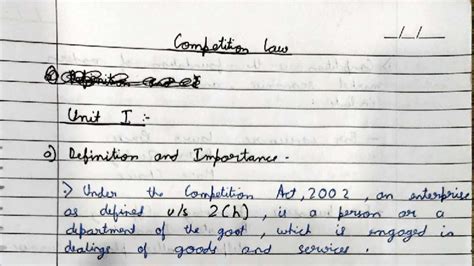 __/__/__
Competition Law
Unit I :-
o) Definition and Importance.
:> Under the Competition Act, 2002, an enterprise
as defined u/s 2(h), is a person or a
department of the govt, which is engaged in
dealings of goods and services.